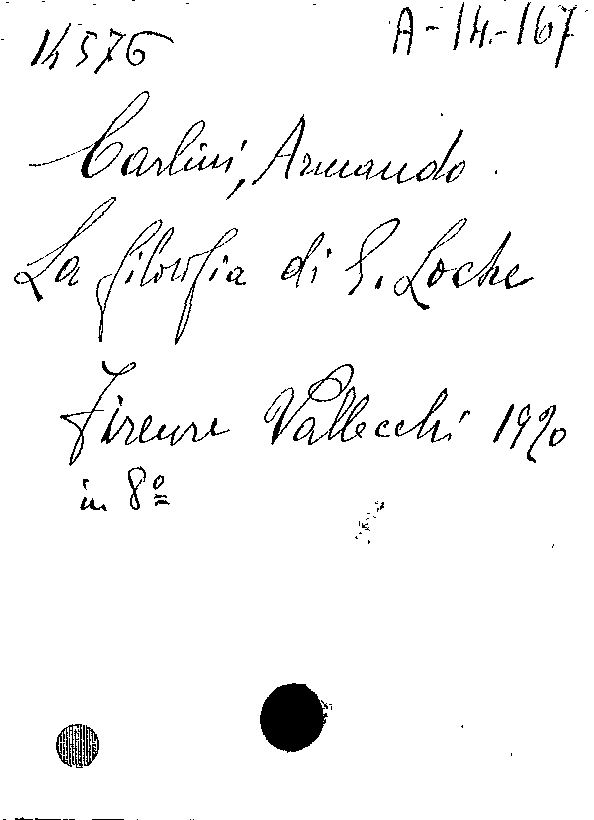 14576
A-14.-167
Carlini, Armando.
La filosofia di G. Locke
Firenze Vallecchi 1920
in 8º